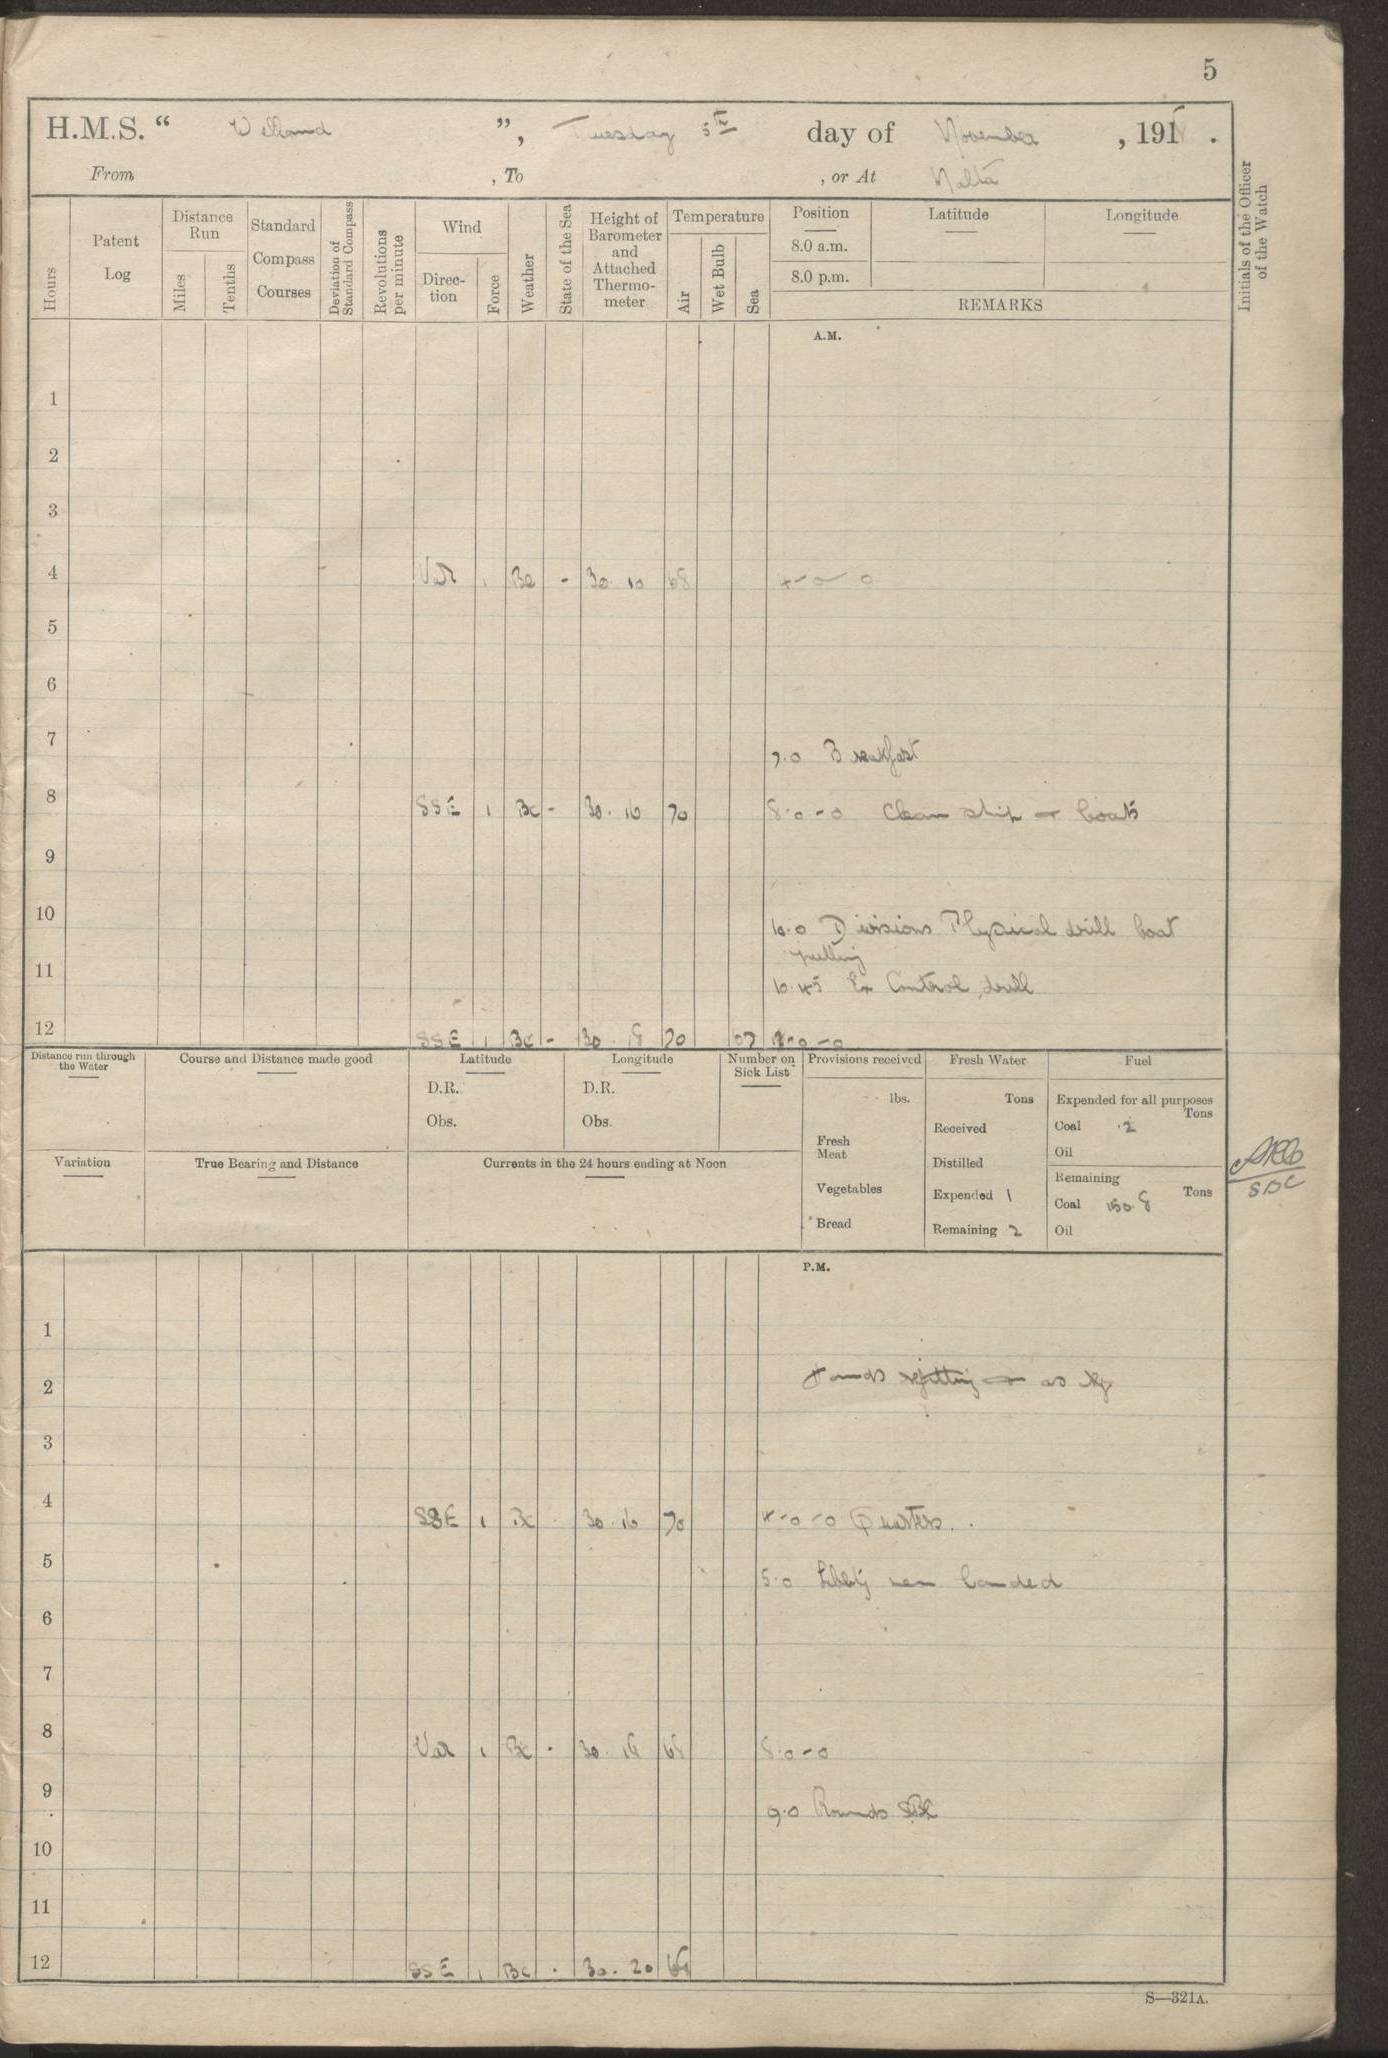 5
H.M.S. “ Welland ”, Tuesday 5th day of November , 1918 .
From , To , or At Malta
Hours
Patent Log
Distance Run
Miles
Tenths
Standard Compass Courses
Deviation of Standard Compass
Revolutions per minute
Wind
Direction
Force
Weather
State of the Sea
Height of Barometer and Attached Thermometer
Temperature
Air
Wet Bulb
Sea
Position
8.0 a.m.
8.0 p.m.
Latitude
Longitude
REMARKS
Initials of the Officer of the Watch
A.M.
1
2
3
4 Var 1 Bc - 30. 10 68 4-0-0
5
6
7 7.0 Breakfast
8 SSE 1 Bc - 30. 16 70 8.0-0 Clean ship & boats
9
10 10.0 Divisions Physical drill boat
pulling
11 10.45 Ex Control drill
12 SSE 1 Bc - 30. 18 70 67 -0-0
Distance run through the Water
Course and Distance made good
Latitude
D.R.
Obs.
Longitude
D.R.
Obs.
Number on Sick List
Provisions received
lbs.
Fresh Meat
Vegetables
Bread
Fresh Water
Tons
Received
Distilled
Expended 1
Remaining 2
Fuel
Expended for all purposes
Tons
Coal .2
Oil
Remaining
Coal 150.8 Tons
Oil
Variation
True Bearing and Distance
Currents in the 24 hours ending at Noon
SDC
P.M.
1
2 Hands refitting & as
3
4 SSE 1 Bc 30. 16 70 4-0-0 Quarters.
5 5.0 Liberty men landed
6
7
8 Var 1 Bc . 30. 18 68 8.0-0
9 9.0 Rounds SDC
10
11
12 SSE 1 Bc . 30. 20
S—321A.